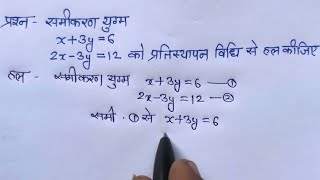 प्रश्न - समीकरण युग्म
x+3y=6
2x-3y=12 को प्रतिस्थापन विधि से हल कीजिए
हल - समीकरण युग्म x+3y=6 —①
2x-3y=12 —②
समी. ① से x+3y=6